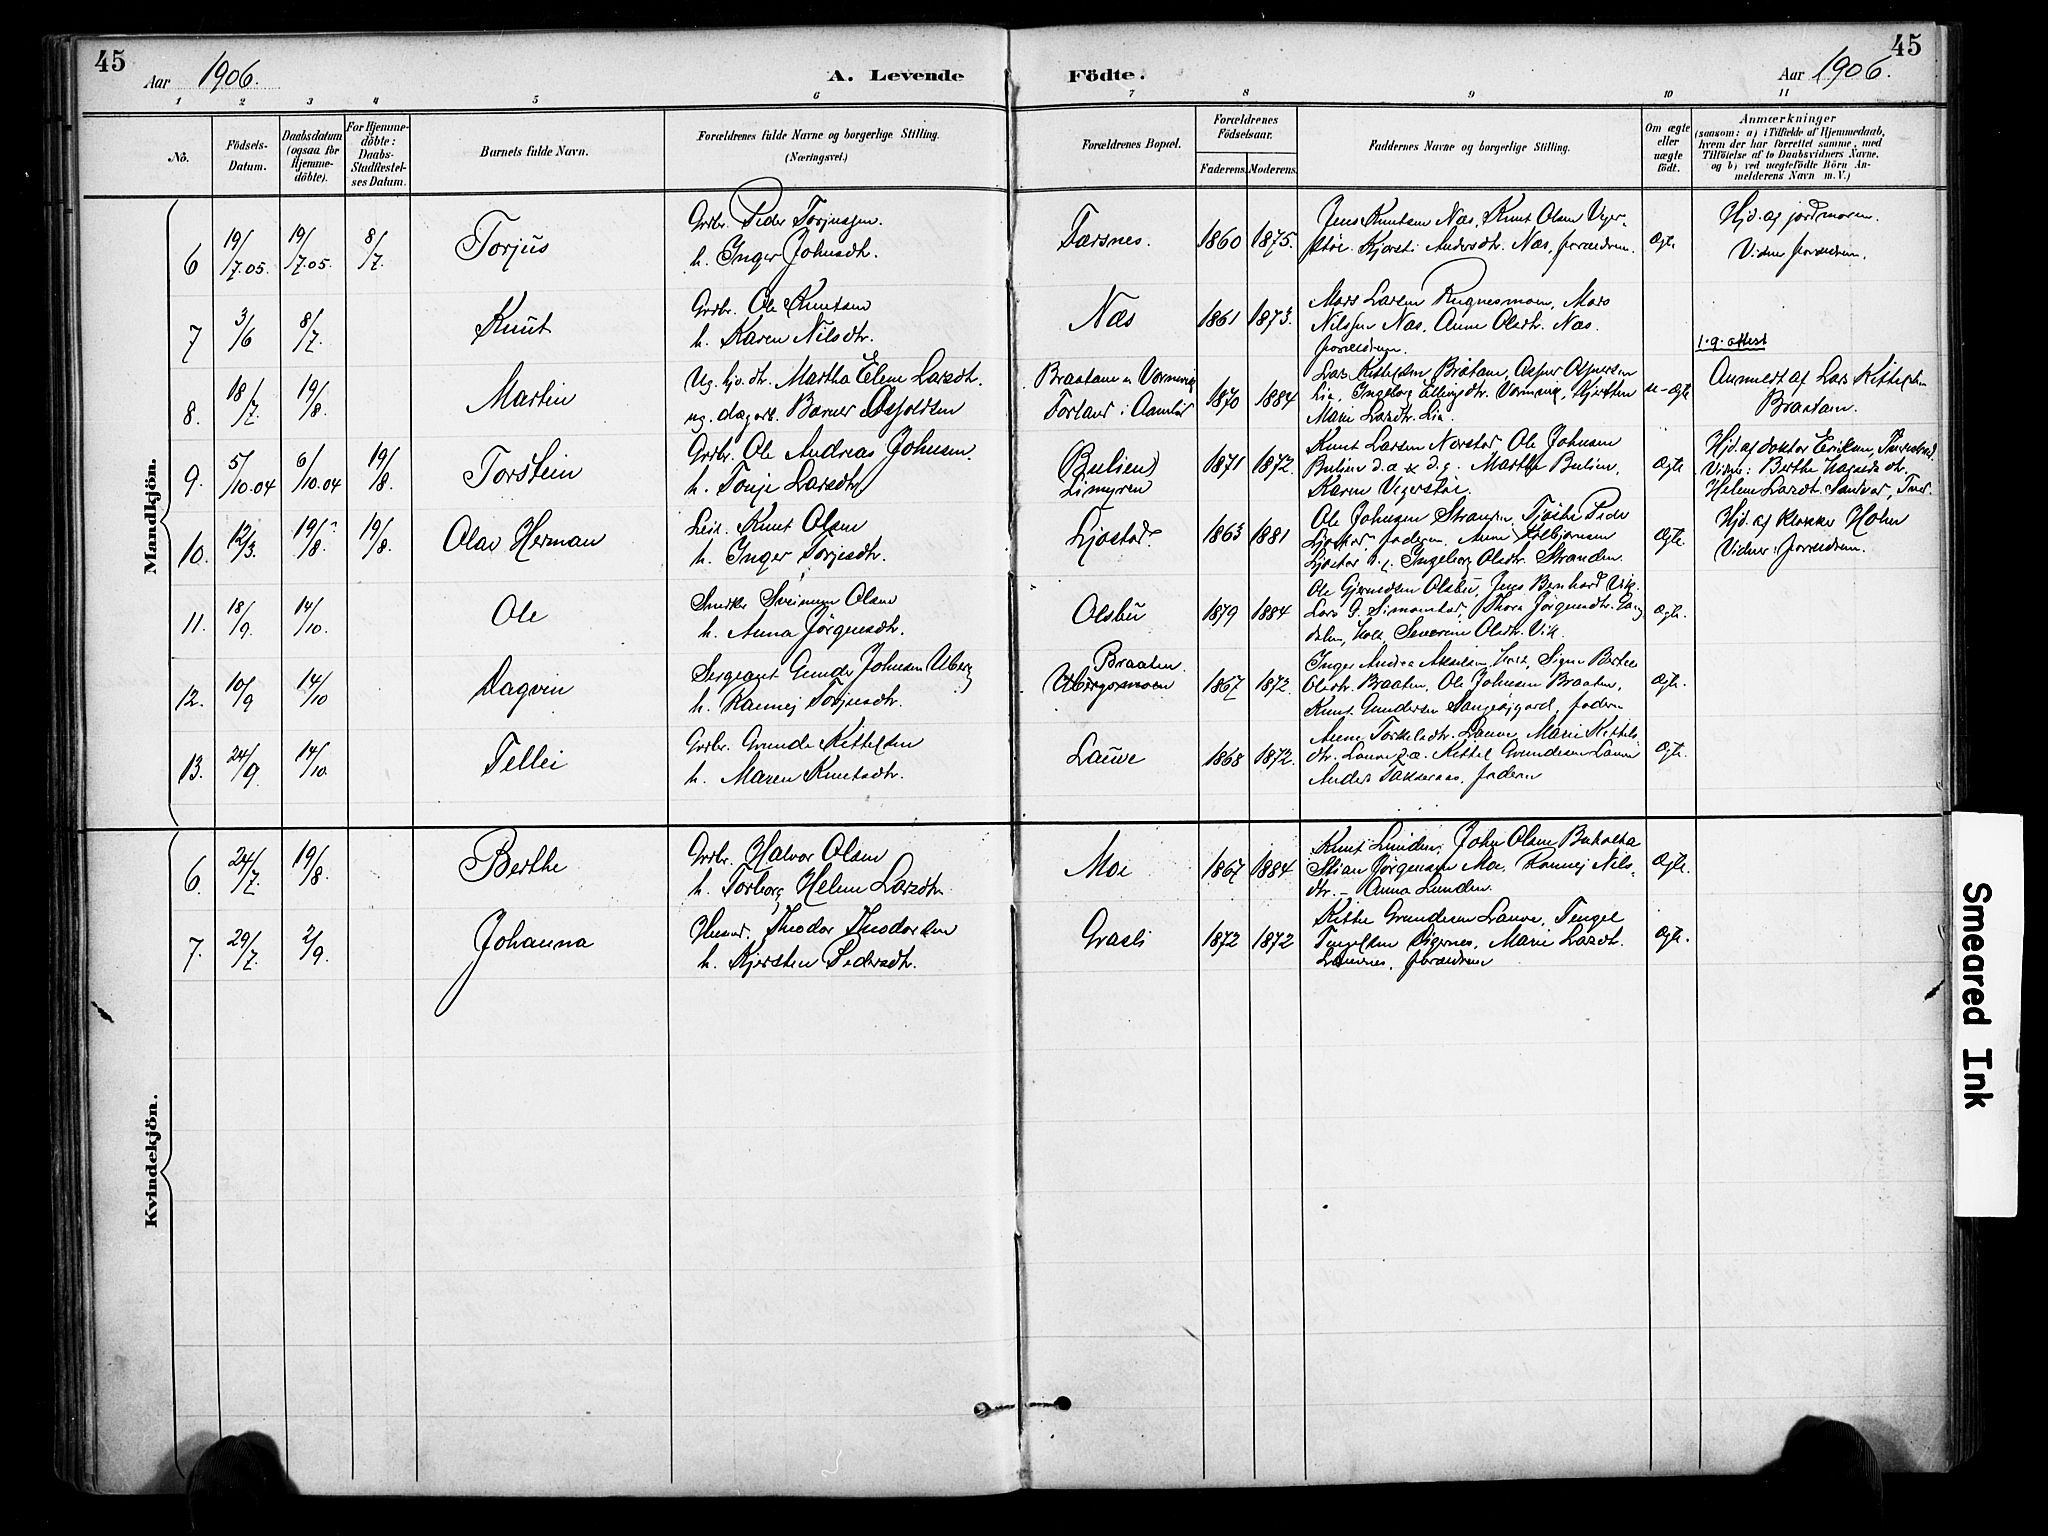 45
Aar 1906.
A. Levende Födte.
Aar 1906.
45
1 2 3 4 5 6 7 8 9 10 11
No.
Födsels-Datum.
Daabsdatum (ogsaa for Hjemmedöbte).
For Hjemmedöbte: Daabs-Stadfæstelses Datum.
Barnets fulde Navn.
Forældrenes fulde Navne og borgerlige Stilling. (Næringsvei.)
Forældrenes Bopæl.
Forældrenes Födselsaar.
Faderens. Moderens.
Faddernes Navne og borgerlige Stilling.
Om ægte eller uægte födt.
Anmærkninger
(saasom: a) i Tilfælde af Hjemmedaab, hvem der har forrettet samme, med Tilföielse af to Daabsvidners Navne, og b) ved uægtefödte Börn Anmelderens Navn m. V.)
Mandkjön.
6 19/7.05. 19/7.05. 8/7. Torjus
Grdbr. Peder Torjussen.
h. Inger Johnsdt.
Færsnes. 1860 1875.
Jens Knutsen Næs, Knut Olsen Veger-
støl. Kjersti Andersdtr. Næs, forældrene.
Ægte
Hjd. af jordmoren.
Vidner forældrene.
7 3/6 8/7. Knut
Grdbr. Ole Knutsen
h. Karen Nilsdtr.
Næs 1861 1873.
Mars Larsen Rugnesmoen, Mars
Nilssen Næs, Anne Olsdtr. Næs.
forældrene.
1.9. attest
8. 18/7. 19/8. Martin
Ug. hjv. dtr. Martha Elene Larsdt.
ug. dagarb. Barner Osfoldsen
Braatane n Vormevig
1870 1884
Lars Kittelsen Bråtane, Asper Aspersen
Lia, Ingeborg Ellingsdtr. Vormevig, Kjersten
Marie Larsdtr. Lia.
u-ægte
Anmeldt af Lars Kittelsen
Braatane.
9. 5/10.04 6/10.04 19/8. Torstein
Grdbr. Ole Andreas Johnsen
h. Tonje Larsdtr
Bulien)
Limyren
1871 1872.
Knut Larsen Nerstøl Ole Johnsen
Bulien d.æ & d.y. Marthe Bulien,
Karen Vegerstøl.
Ægte
Hjd. af doktor Eriksen,
Vidne: Berthe
Helene Larsdt. Tved.
10. 12/3. 19/8. 19/8. Olav Herman
Leil. Knut Olsen
h. Inger Torjusdtr.
Ljøstad 1863 1881
Ole Johnsen Peder
Ljøstad, faderen. Anne Kolbjørnsen
Ljøstad Ingeborg Olsdtr. Stranden.
Ægte.
Hjd. af Klokker Holm
Vidner: forældrene.
11. 18/9. 14/10. Ole
Snedker Sveinung Olsen
h. Anna Jörgensdtr.
Olsbu 1879 1884
Ole Gjermundsen Olsbu, Jens Bernhard Vik.
Lars G. Simonstad, Thora Jörgensdtr.
dalen, Holt, Severine Olsdtr. Vik.
Ægte.
12. 10/9 14/10 Dagvin
Sergeant Gunder Johnsen Uberg
h. Rannei Torjusdtr.
Braaten.
Ubergsmoen
1867 1872.
Inger Andrea Akselsen, Holt, Signe Bertee
Olsdtr. Braaten, Ole Johnsen Braaten,
Knut Gundersen Songesjgord, faderen
Ægte.
13. 24/9. 14/10 Tellei
Grdbr. Grunde Kittelsen
h. Maren Knutsdtr.
Lauve 1868 1872.
Anne Torkelsdtr. Lauve, Marie Kittels-
dtr. Lauve Kittel Grundesen Lauve
Anders faderen
Ægte.
Kvindekjön.
6. 24/7. 19/8. Berthe
Grdbr. Halvor Olsen
h. Torborg Helene Larsdtr.
Moe 1867 1884
Knut Lunden, John Olsen Bukholta
Stian Jörgensen Moe, Rannei Nils-
dtr. – Anna Lunden.
Ægte.
7. 29/7. 2/9. Johanna
Husmd. Theodor Theodorsen
h. Kjersten Pedersdtr.
Grasli 1872 1872
Kittel Grundesen Lauve, Tengel
Tengelsen Sigernes, Marie Larsdt.
forældrene
Ægte.
Smeared Ink